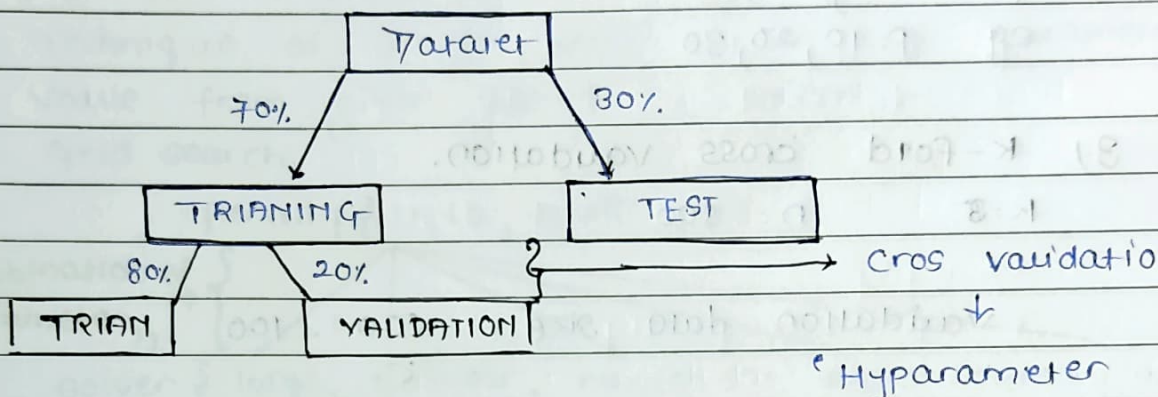 Dataset
70%.
30%.
TRIANING
TEST
80%
20%
Cros validatio
TRIAN
VALIDATION
Hyparameter